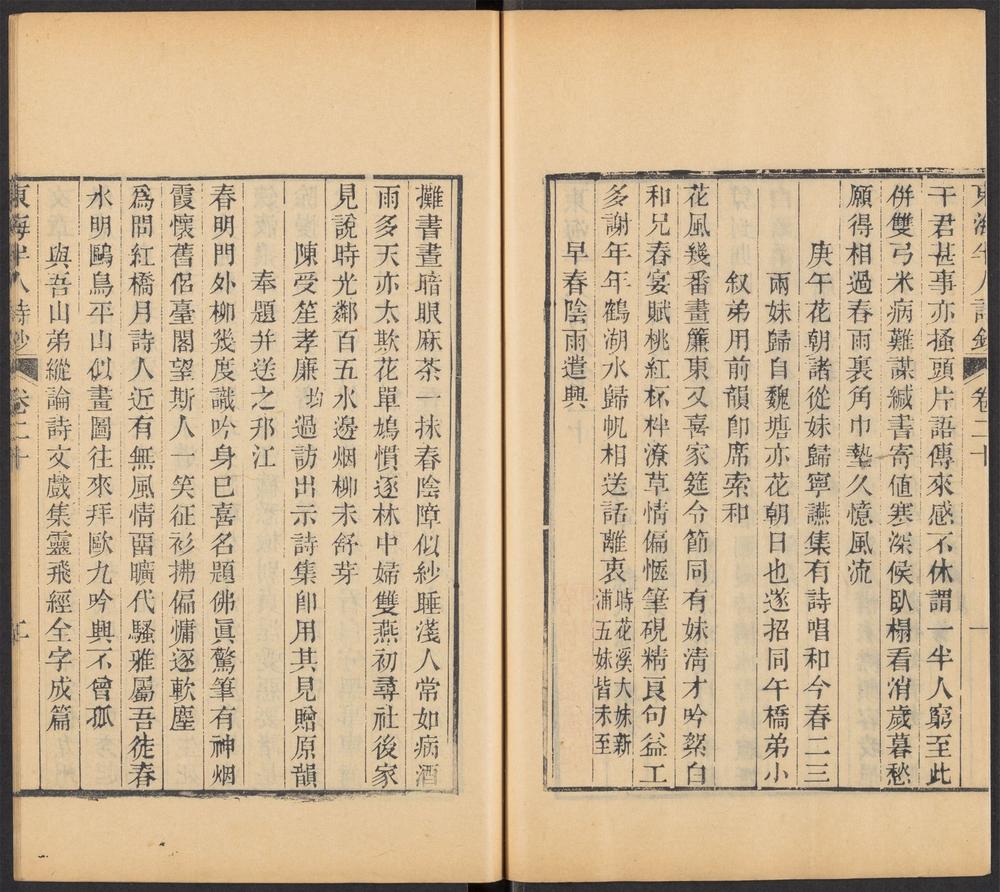 東海半人詩鈔 卷二十 一
干君甚事亦搔頭片語傳來感不休謂一半人窮至此
併雙弓米病難謀緘書寄值寒深候臥榻看消歲暮愁
願得相過春雨裏角巾墊久憶風流
庚午花朝諸從妹歸寧讌集有詩唱和今春二三
兩妹歸自魏塘亦花朝日也遂招同午橋弟小
叙弟用前韻卽席索和
花風幾番畫簾東又喜家筵令節同有妹淸才吟絮白
和兄春宴賦桃紅杯柈潦草情偏愜筆硯精良句益工
多謝年年鶴湖水歸帆相送話離衷時花溪大妹新浦五妹皆未至
早春陰雨遣興
攤書晝暗眼麻茶一抹春陰障似紗睡淺人常如病酒
雨多天亦太欺花單鳩慣逐林中婦雙燕初尋社後家
見說時光鄰百五水邊烟柳未舒芽
陳受笙孝廉均過訪出示詩集卽用其見贈原韻
奉題幷送之邗江
春明門外柳幾度識吟身已喜名題佛眞驚筆有神烟
霞懷舊侶臺閣望斯人一笑征衫拂偏慵逐軟塵
爲問紅橋月詩人近有無風情畱曠代騷雅屬吾徒春
水明鷗鳥平山似畫圖往來拜歐九吟興不曾孤
與吾山弟縱論詩文戲集靈飛經全字成篇
東海半人詩鈔 卷二十 二